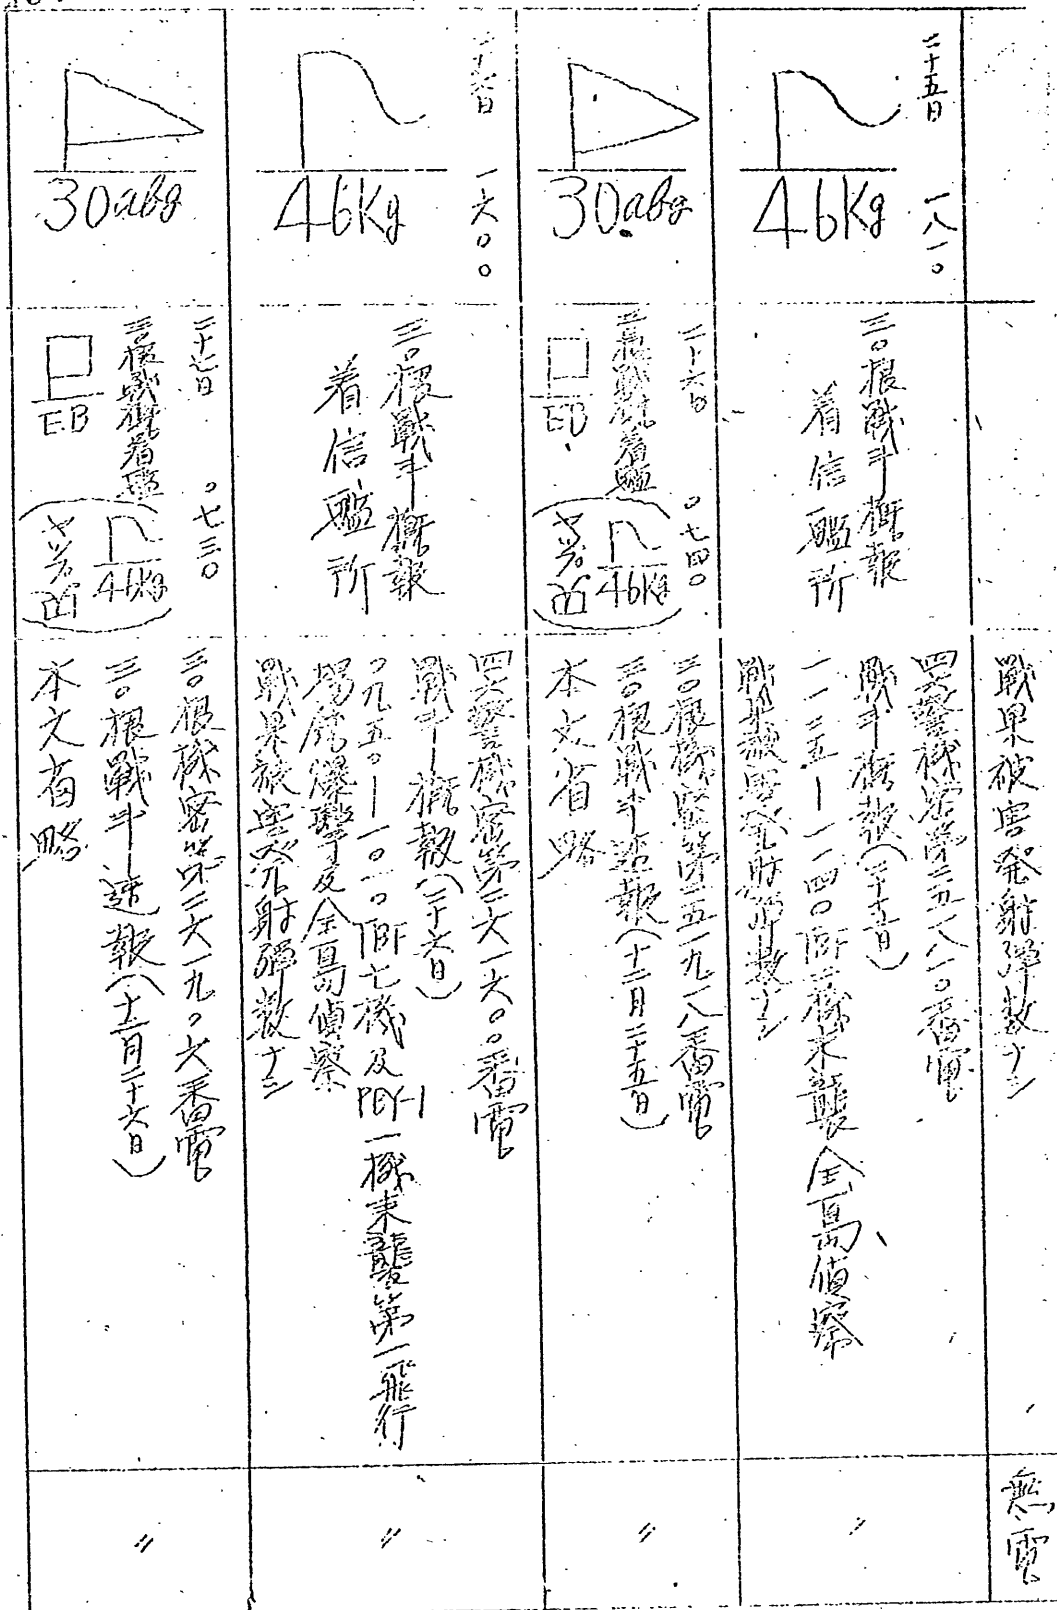 戰果被害発射弾数ナシ
無電
二十五日 一八一〇
46Kg
三〇根戰斗概報
着信艦所
四六警機密第二五一八一〇番電
戰斗概報(二十五日)
一一三五―一一四〇TBF二機来襲全島偵察
戰果被害発射弾数ナシ
〃
30abg
二十六日 〇七四〇
三〇根戰斗概着艦
EB
46Kg
三〇根機密第二五一九一八番電
三〇根戰斗速報(十二月二十五日)
本文省略
〃
二十六日 一六〇〇
46Kg
三〇根戰斗概報
着信艦所
四六警機密第二六一六〇〇番電
戰斗概報(二十六日)
〇九五〇―一〇一〇TBF七機及PBY-1一機来襲第一飛行
場銃爆撃及全島偵察
戰果被害発射弾数ナシ
〃
30abg
二十七日 〇七三〇
三〇根戰斗概着艦
EB
46Kg
三〇根機密第二六一九〇六番電
三〇根戰斗速報(十二月二十六日)
本文省略
〃